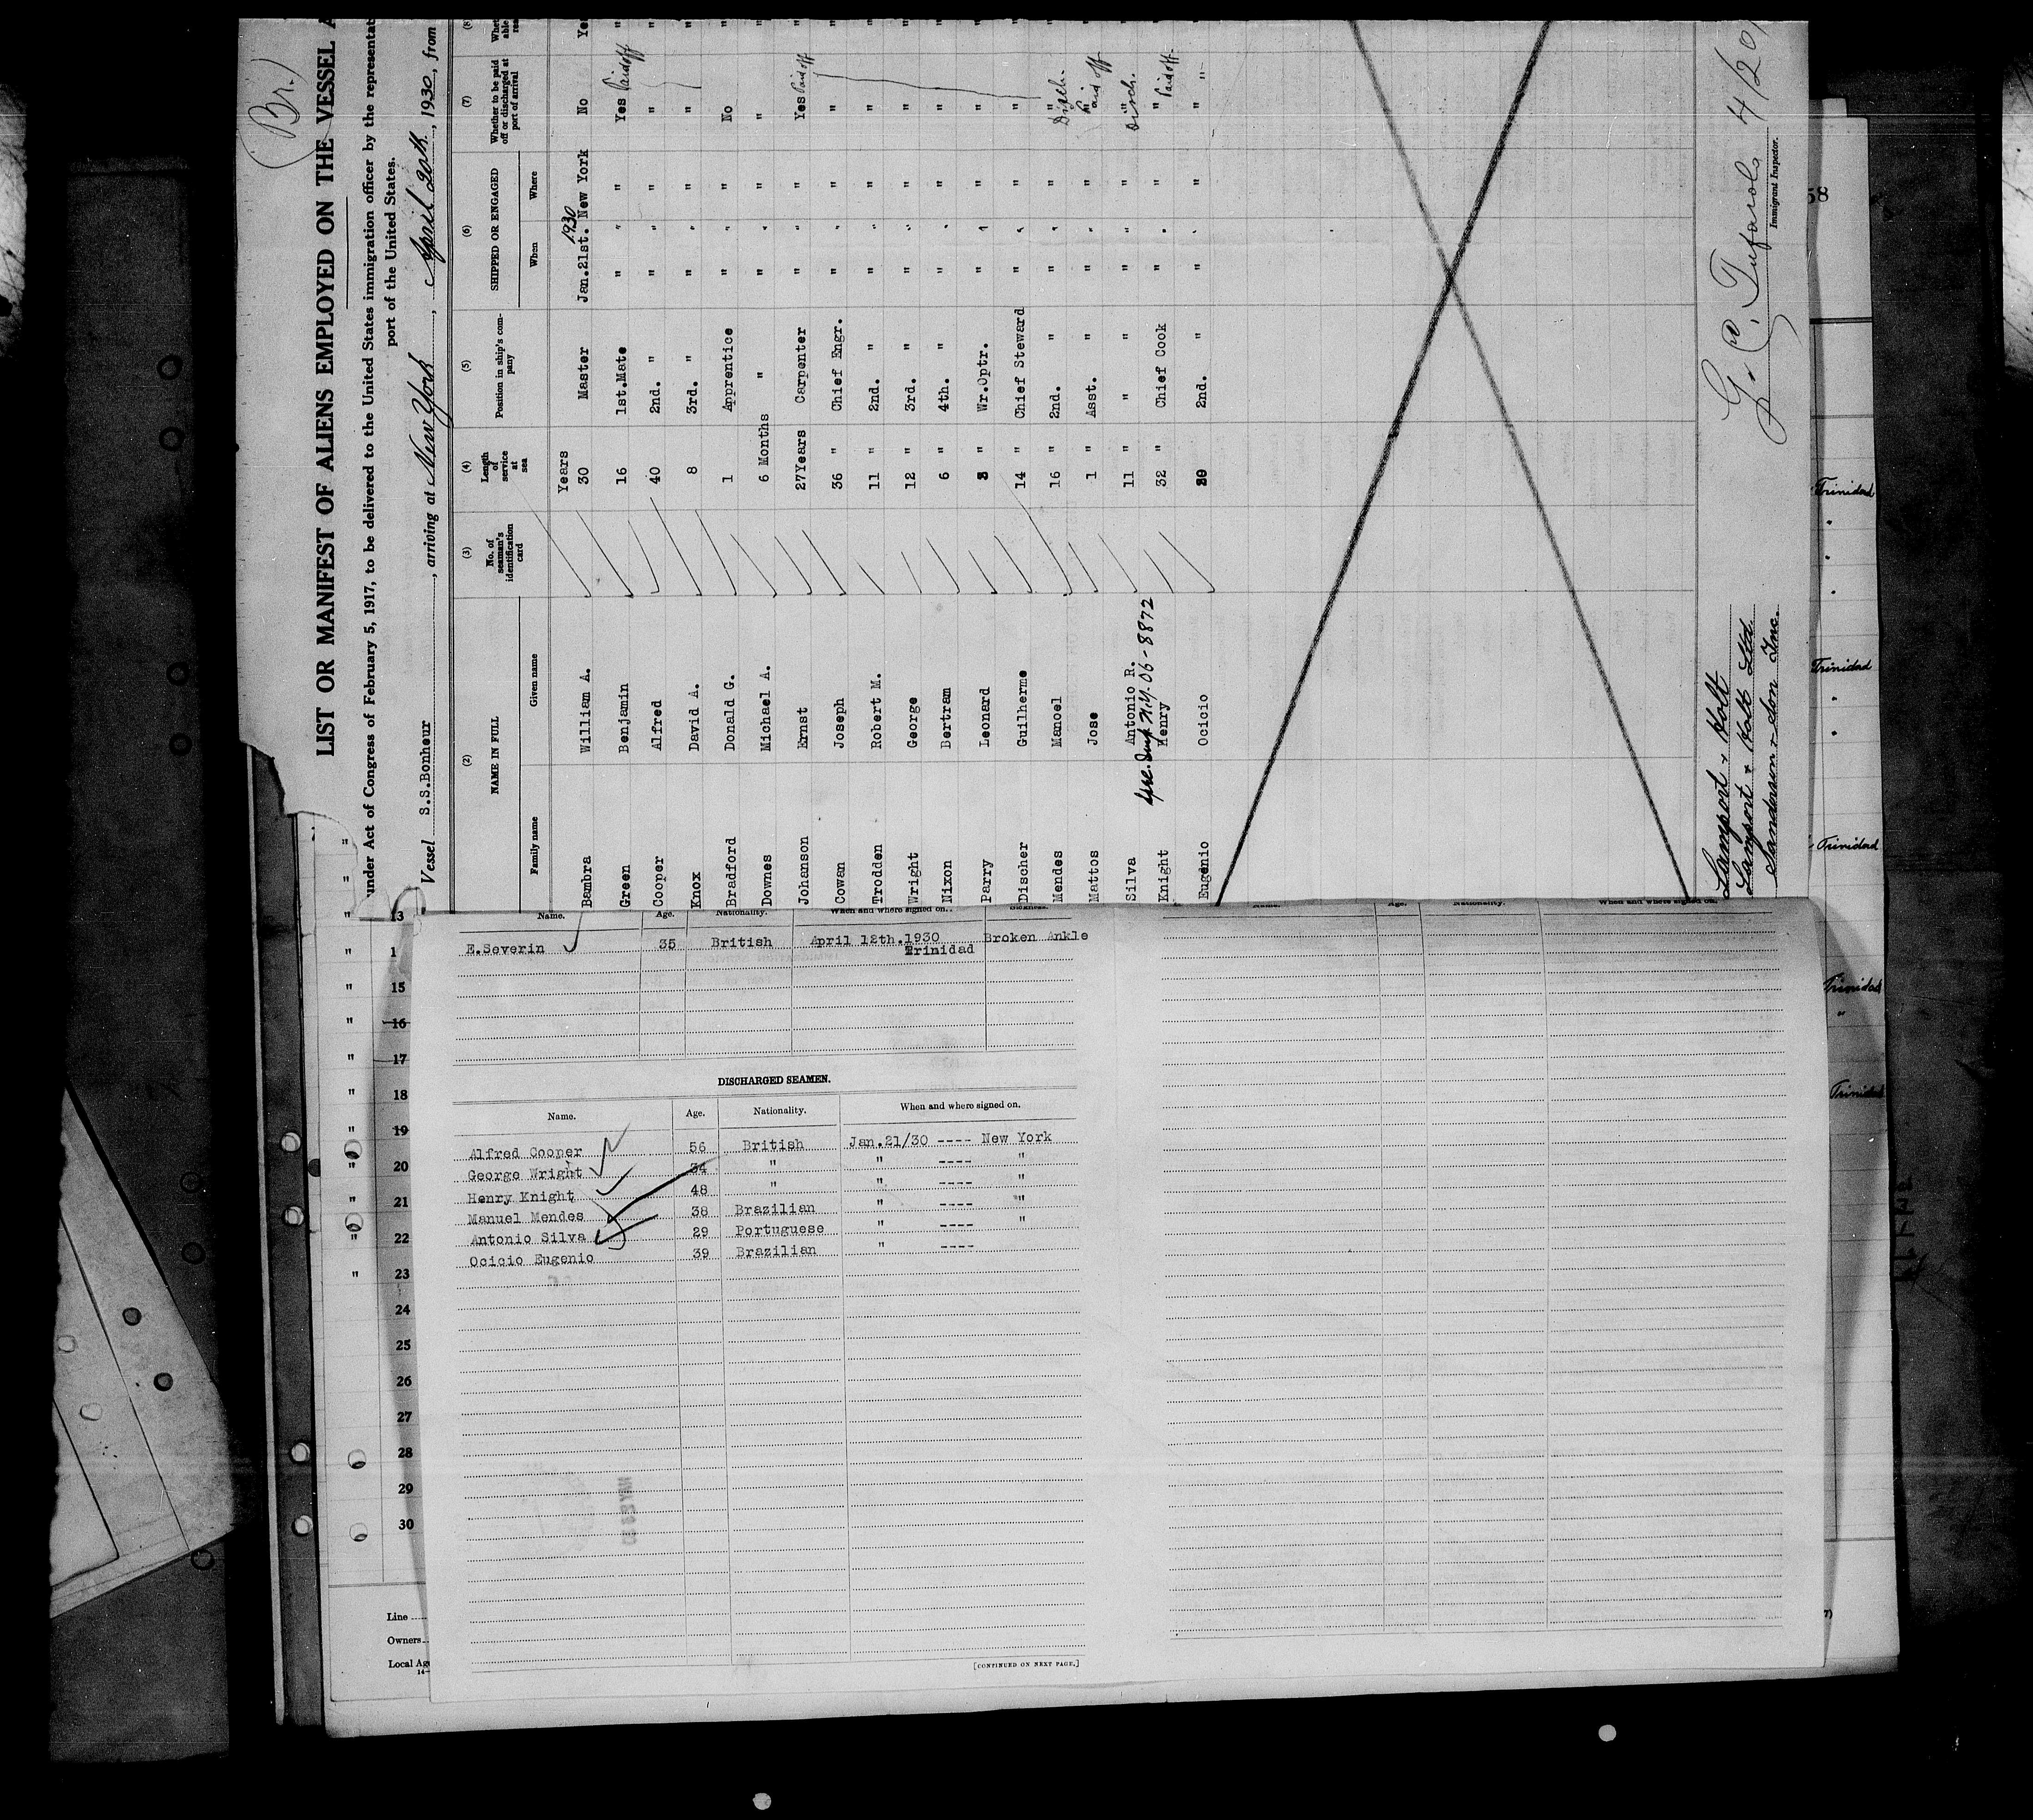 (Br.)
LIST OR MANIFEST OF ALIENS EMPLOYED ON THE VESSEL A
under Act of Congress of February 5, 1917, to be delivered to the United States immigration officer by the representat
port of the United States.
Vessel S.S.Bonheur, arriving at New York, April 20th, 1930, from
(2) (3) (4) (5) (6) (7) (8)
NAME IN FULL No. of seaman's identification card Length of service at sea Position in ship's company SHIPPED OR ENGAGED Whether to be paid off or discharged at port of arrival
Family name Given name When Where
Years 1930
Bambra William A. 30 Master Jan.21st. New York No Yes
Green Benjamin 16 1st.Mate " " Yes Paid off "
Cooper Alfred 40 2nd. " " " " "
Knox David A. 8 3rd. " " " " "
Bradford Donald G. 1 Apprentice " " No "
Downes Michael A. 6 Months " " " " "
Johanson Ernst 27Years Carpenter " " Yes Paid off "
Cowan Joseph 36 " Chief Engr. " " " "
Trodden Robert M. 11 " 2nd. " " " " "
Wright George 12 " 3rd. " " " " "
Nixon Bertram 6 " 4th. " " " " "
Parry Leonard " Wr.Optr. " " " "
Discher Guilherme 14 " Chief Steward " " " "
Mendes Manoel 16 " 2nd. " " " " Disch. "
Mattos Jose 1 " Asst. " " " " Paid off "
Silva Antonio R. 11 " " " " " " Disch. "
N.Y. 06-8872
Knight Henry 32 " Chief Cook " " " Paid off "
Eugenio Ocicio 2nd. " " " " "
Lamport & Holt
Lamport & Holt Ltd.
Sanderson & Son Inc.
4/20/
Immigrant Inspector.
58
Trinidad
"
"
"
"
Trinidad
"
"
Trinidad
Trinidad
"
Trinidad
Name. Age. Nationality. When and where signed on.
E.Severin 35 British April 12th.1930 Trinidad Broken Ankle
DISCHARGED SEAMEN.
Name. Age. Nationality. When and where signed on.
Alfred Cooper 56 British Jan.21/30 ---- New York
George Wright 34 " " ---- "
Henry Knight 48 " " ---- "
Manuel Mendes 38 Brazilian " ---- "
Antonio Silva 29 Portuguese " ---- "
Ocicio Eugenio 39 Brazilian " ----
[CONTINUED ON NEXT PAGE.]
Name. Age. Nationality. When and where signed on.
13
1
15
16
17
18
19
20
21
22
23
24
25
26
27
28
29
30
Line
Owners
Local Ag
14-
7)